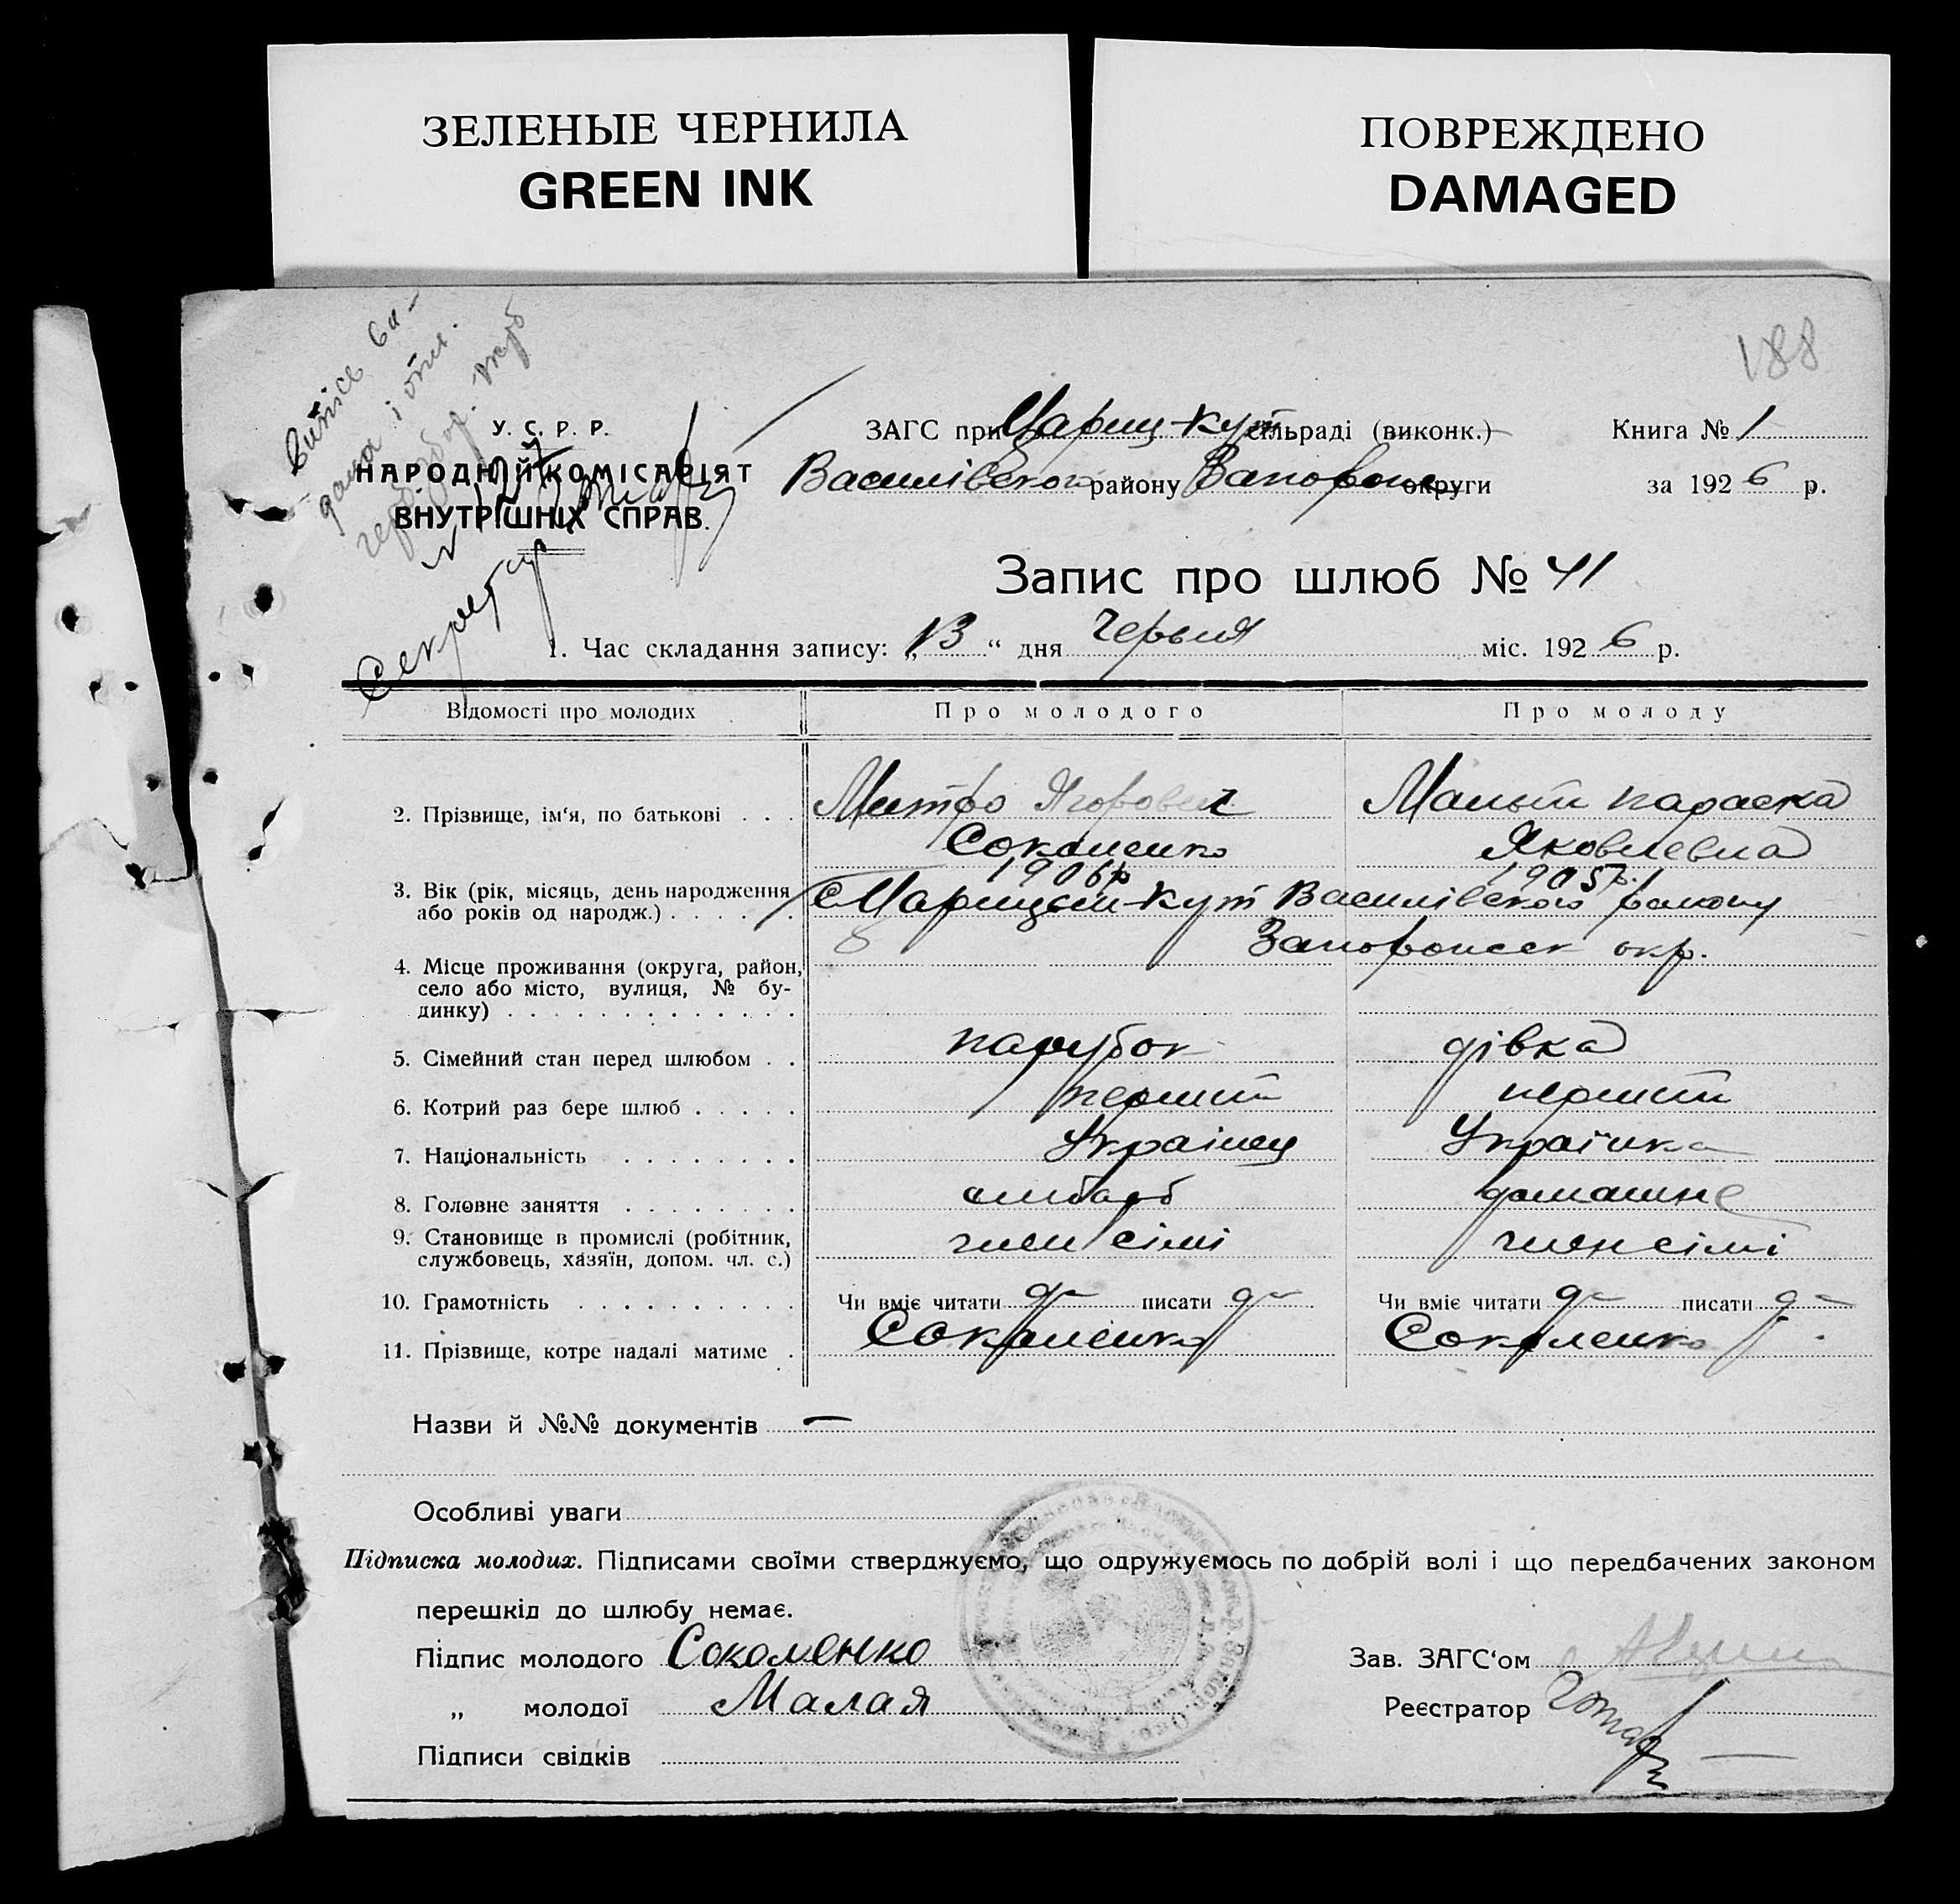 ЗЕЛЕНЫЕ ЧЕРНИЛА
GREEN INK
ПОВРЕЖДЕНО
DAMAGED
188
Витяг ви-
дана і
У. С. Р. Р.
НАРОДНІЙ КОМІСАРІЯТ
ВНУТРІШНІХ СПРАВ.
Секретар
ЗАГС при Цариц-Кут сільраді (виконк.)
Книга № 1
Василівского району округи
за 1926 р.
Запис про шлюб № 41
1. Час складання запису: „13“ дня Червня міс. 1926 р.
Відомості про молодих
Про молодого
Про молоду
2. Прізвище, ім‘я, по батькові
Митро Ягорович
Соколенко
Малый Параска
Яковлевна
3. Вік (рік, місяць, день народження
або років од народж.)
1906р
1905р.
Царицын-Кут Василівского району
Запорожск окр.
4. Місце проживання (округа, район,
село або місто, вулиця, № бу-
динку)
5. Сімейний стан перед шлюбом
парубок
дівка
6. Котрий раз бере шлюб
перший
перший
7. Національність
Україиец
Українка
8. Головне заняття
хлібороб
домашнє
9. Становище в промислі (робітник,
службовець, хазяїн, допом. чл. с.)
член сімі
член сімі
10. Грамотність
Чи вміє читати да писати да
Чи вміє читати да писати да
11. Прізвище, котре надалі матиме
Соколенко
Соколенко
Назви й №№ документів —
Особливі уваги
Підписка молодих. Підписами своїми стверджуємо, що одружуємось по добрій волі і що передбачених законом
перешкід до шлюбу немає.
Підпис молодого Соколенко
„ молодої Малая
Підписи свідків
Зав. ЗАГС‘ом
Реєстратор